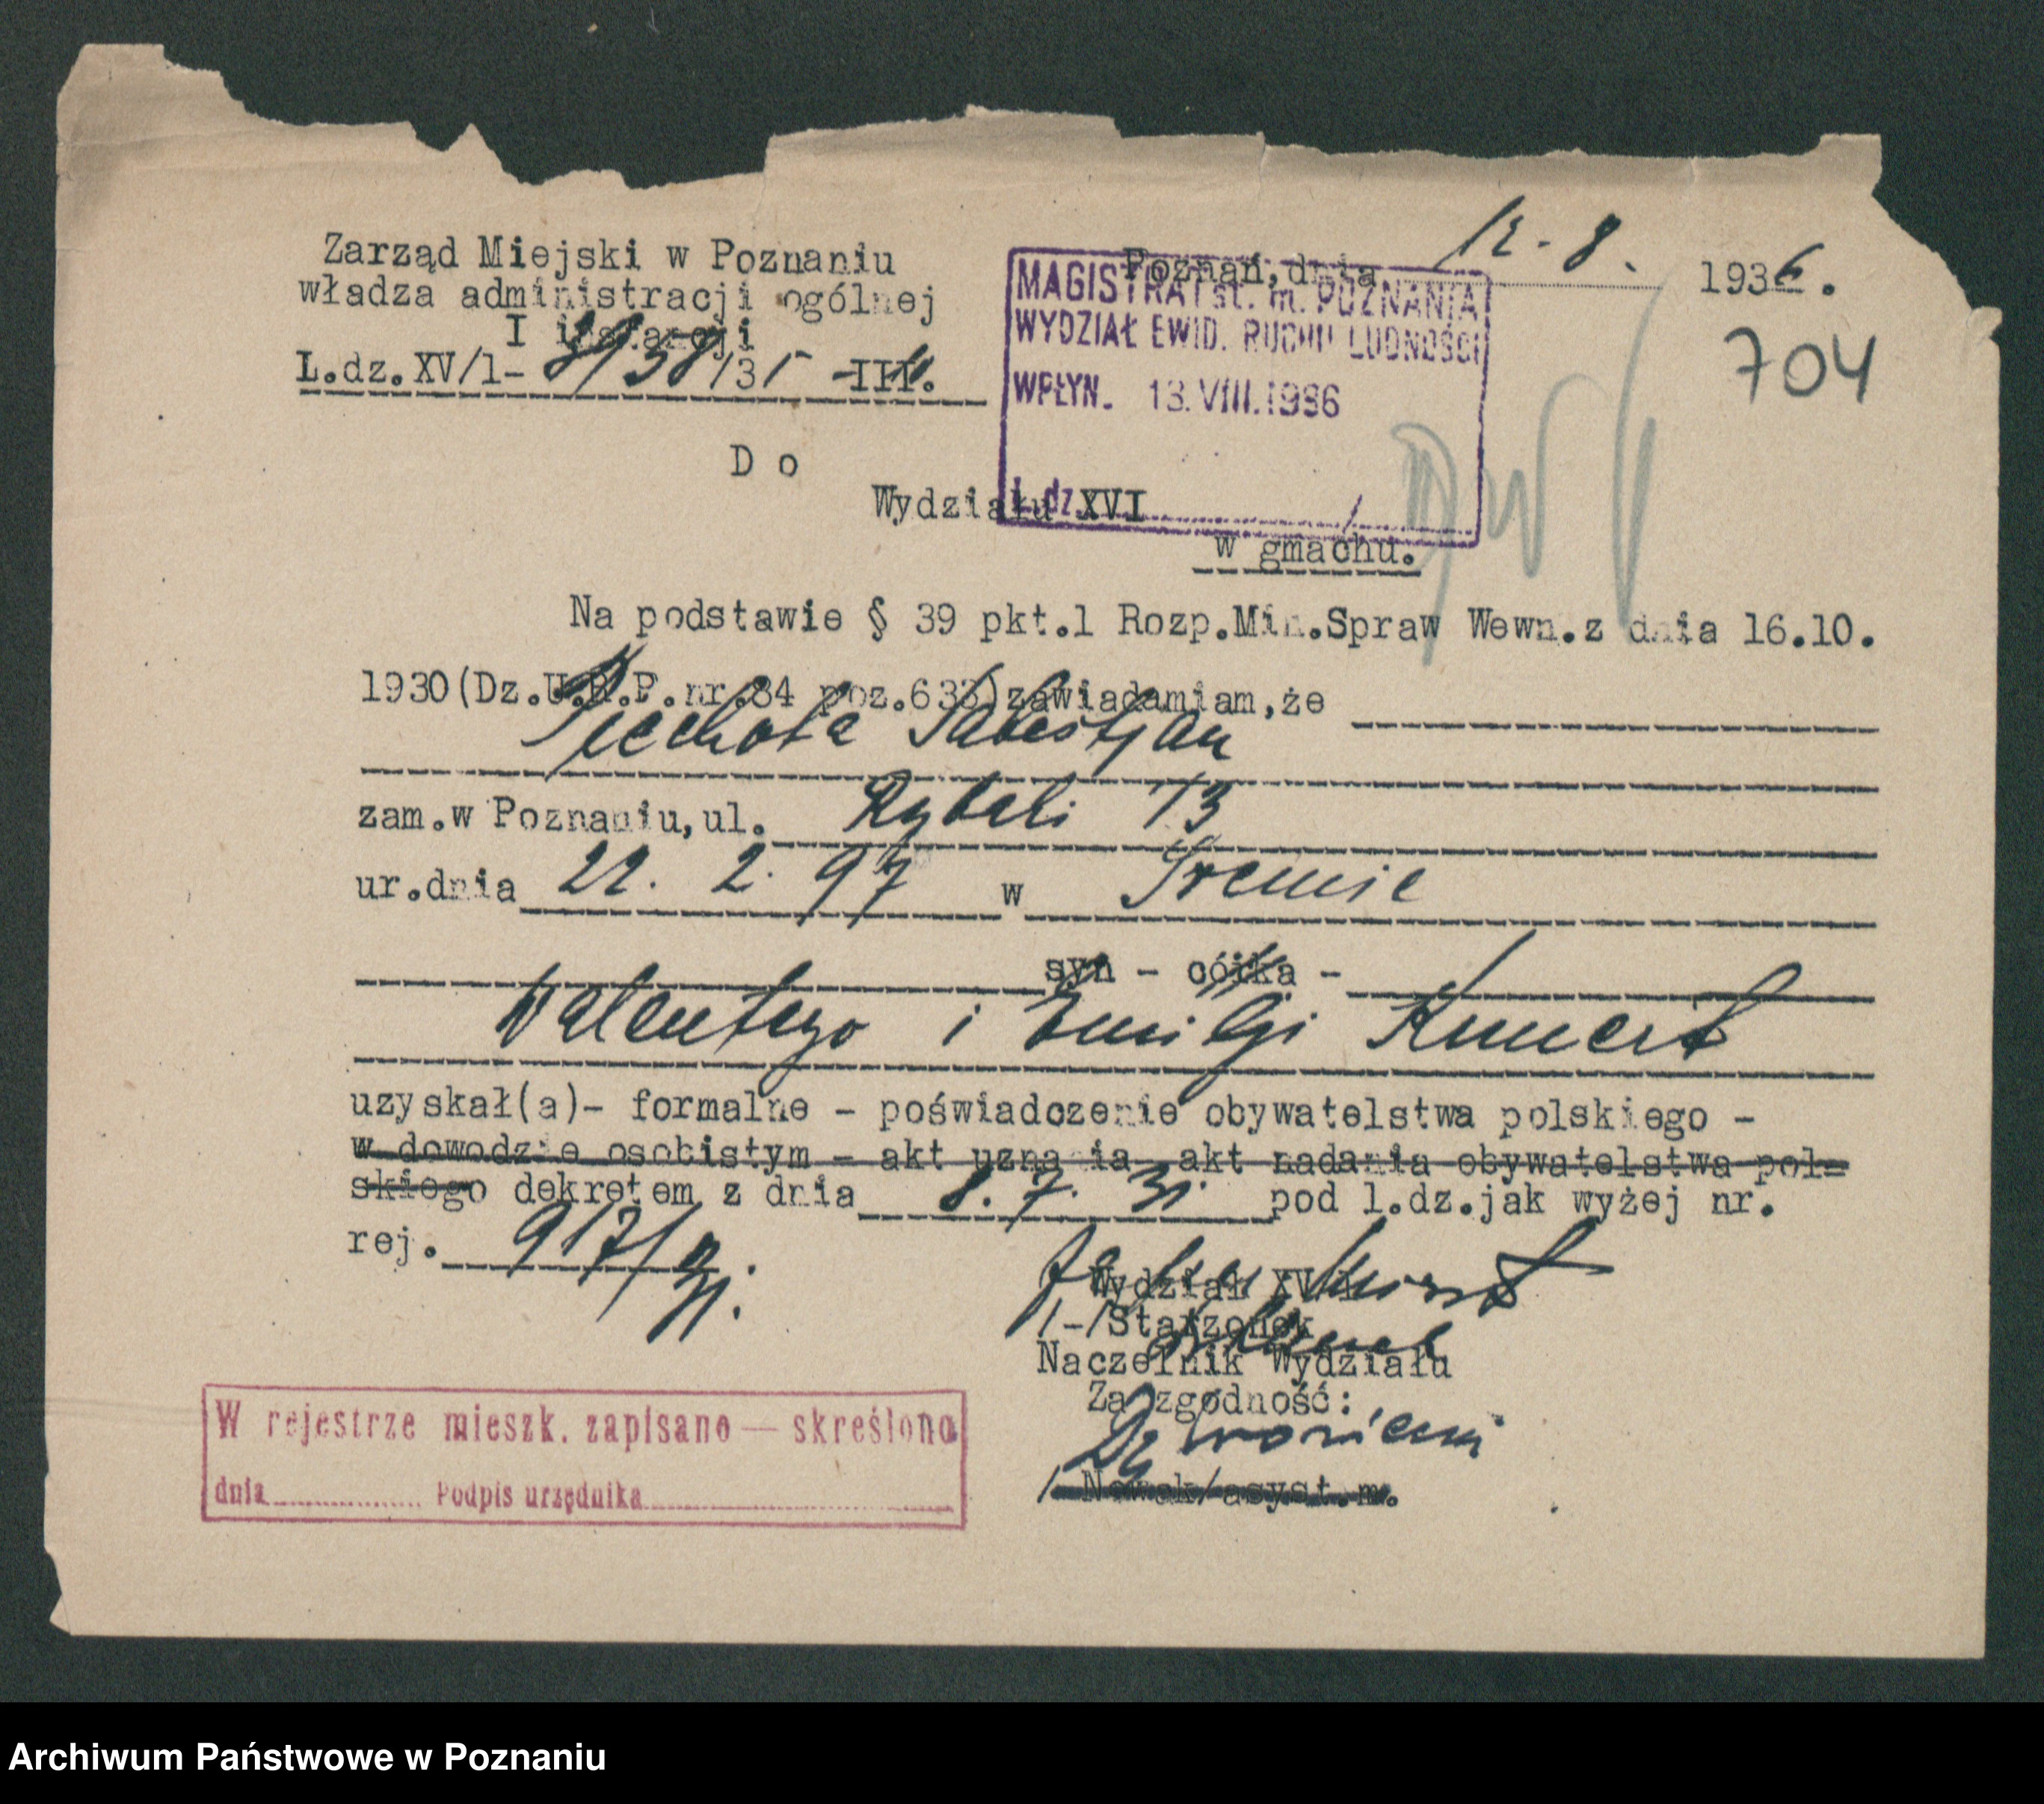 Zarząd Miejski w Poznaniu
władza administracji ogólnej
I instancji
L.dz.XV/1- /3 -III.
Poznań,dnia 12-8. 1936.
704
MAGISTRAT st. m. POZNANIA
WYDZIAŁ EWID. RUCHU LUDNOŚCI
WPŁYN. 13.VIII.1936
L.dz.
D o
Wydziału XVI
w gmachu.
Na podstawie § 39 pkt.1 Rozp.Min.Spraw Wewn.z dnia 16.10.
1930(Dz.U.R.P.nr.84 poz.633)zawiadamiam,że
Piechota Sabestjan
zam.w Poznaniu,ul. Rybaki 13
ur.dnia 22. 2. 97 w Śremie
syn - córka -
Walentego i Emilji Kunert
uzyskał(a)- formalne - poświadczenie obywatelstwa polskiego -
w dowodzie osobistym - akt uznania akt nadania obywatelstwa pol=
skiego dekretem z dnia 8. 7. 31. pod l.dz.jak wyżej nr.
rej. 917/31.
Wydział XV/1
/-/Starzonek
Naczelnik Wydziału
Za zgodność:
/-Nowak/asyst.m.
W rejestrze mieszk. zapisano — skreślono
dnia Podpis urzędnika
Archiwum Państwowe w Poznaniu